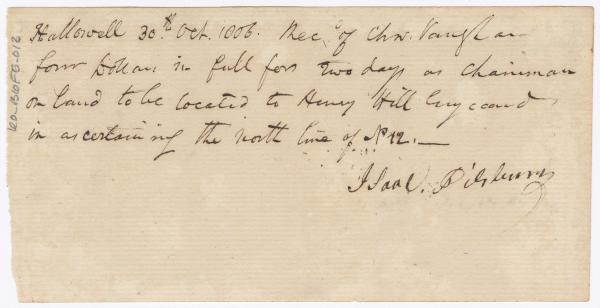 Hallowell 30.th Oct. 1806. Rec.d of Chrs. Vaughan
four Dollars in full for two days as Chainman
on land to be located to Henry Hill
in ascertaining the north line of No 12. —
Isaac Pilsbury
120-1310FB-012